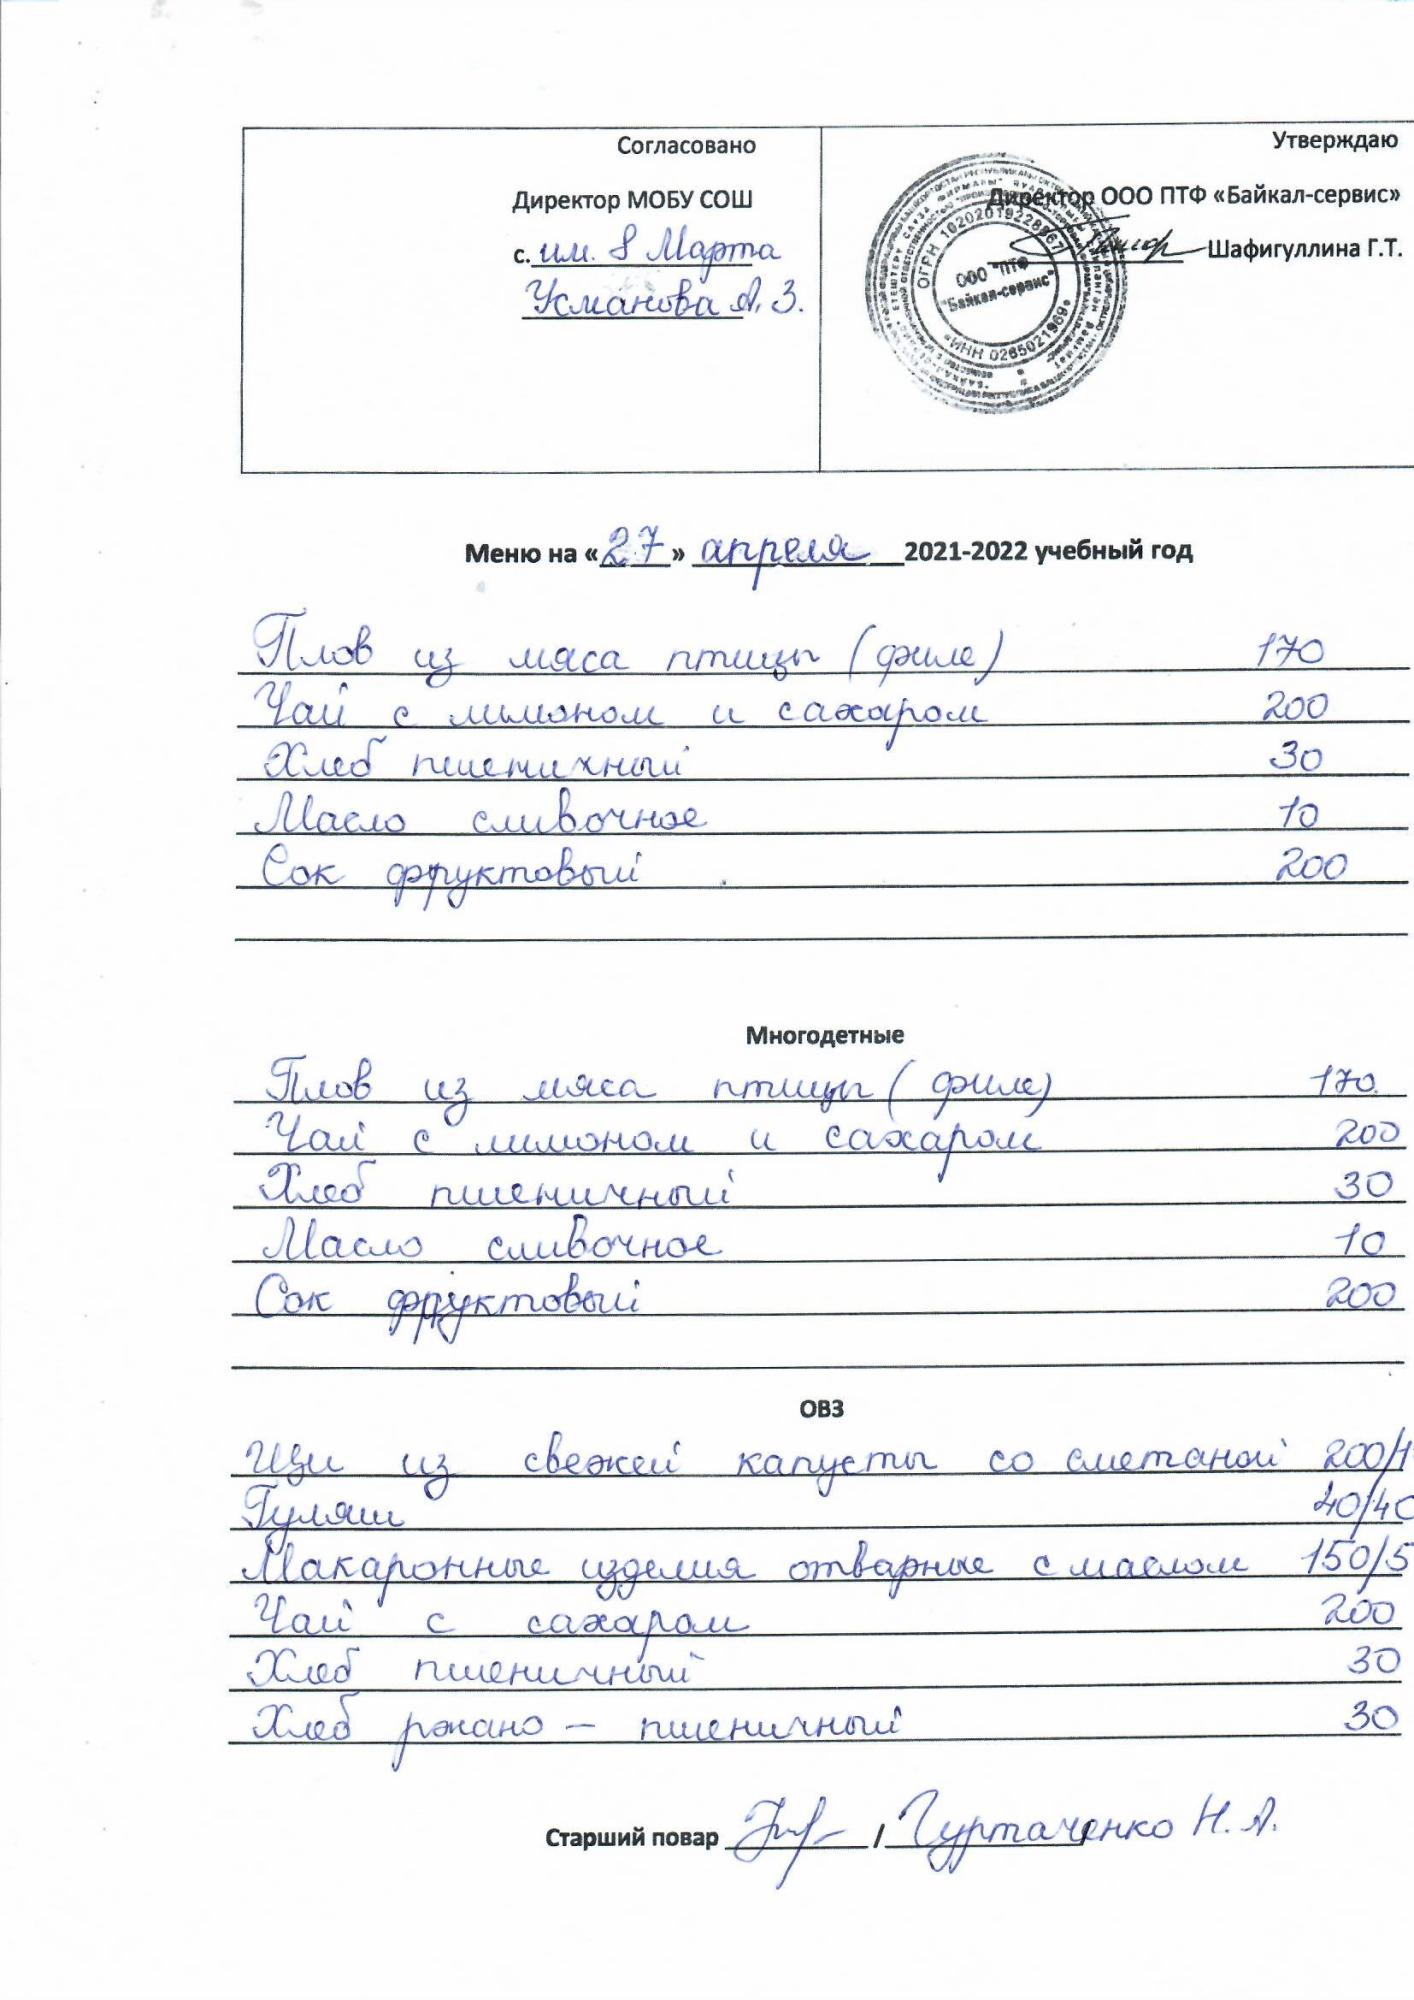 Согласовано
Директор МОБУ СОШ
с. им. 8 Марта
Усманова А. З.
Утверждаю
Директор ООО ПТФ «Байкал-сервис»
Шафигуллина Г.Т.
ОГРН 1020201922896
ООО "ПТФ
"Байкал-сервис"
ИНН 0265021969
Меню на «27» апреля 2021-2022 учебный год
Плов из мяса птицы (филе) 170
Чай с лимоном и сахаром 200
Хлеб 30
Масло сливочное 10
Сок фруктовый 200
Многодетные
Плов из мяса птицы (филе) 170
Чай с лимоном и сахаром 200
Хлеб пшеничный 30
Масло сливочное 10
Сок фруктовый 200
ОВЗ
Щи из свежей капусты со сметаной 200/1
Гуляш 40/40
Макаронные изделия отварные с маслом 150/5
Чай с сахаром 200
Хлеб пшеничный 30
Хлеб ржано - пшеничный 30
Старший повар / Гуртаченко Н. А.